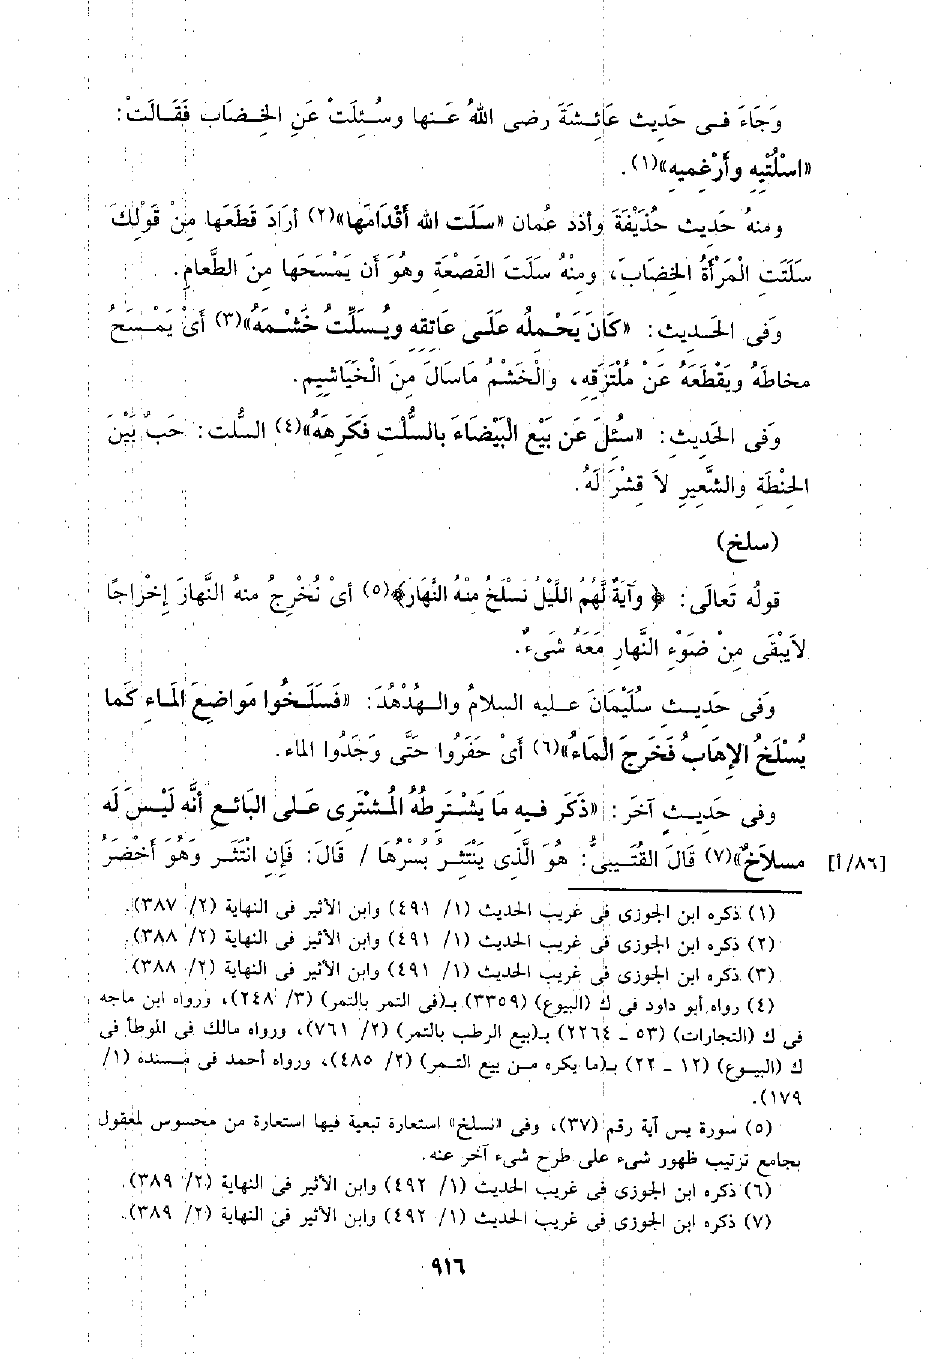 وَجَاءَ فى حَدِيث عَائِشَةَ رضى اللهُ عَنها وسُئِلَتْ عَنِ الخِضَاب فَقَالَتْ:
«اسْلُتْيِه وأَرْغمِيه»(١).
ومنهُ حَدِيث حُذَيْفَةَ وأذد عُمان «سَلَت الله أَقْدَامَها»(٢) أرَادَ قَطَعَها مِنْ قَوْلِكَ
سَلَتَتِ الْمَرْأَةُ الخِضَابَ، ومنْهُ سَلَتَ القَصْعَة وهُوَ أن يَمْسَحَها مِنَ الطَّعامِ.
وَفى الحَديثِ: «كَانَ يَحْملُه عَلَى عَاتقِه ويُسَلِّتُ خَشْمَهُ»(٣) أىْ يَمْسَحُ
مخاطَهُ ويَقْطَعَهُ عَنْ مُلْتَزَقِه، والْخَشْمُ مَاسَالَ مِنَ الْخَيَاشِيم.
وَفى الحَديثِ: «سئِلَ عَن بَيْع الْبَيْضَاءَ بالسُّلْتِ فَكَرِهَهُ»(٤) السُّلت: حَب بَيْنَ
الحِنْطَة والشَّعِيرِ لاَ قِشْرَ لَهُ.
(سلخ)
قولُه تَعالَى: ﴿ وآيَةٌ لَّهُمُ اللَّيْلُ نَسْلَخُ مِنْهُ النَّهَارَ﴾(٥) أىْ نُخْرِجُ منهُ النَّهارَ إِخْرَاجًا
لاَيَبْقَى مِنْ ضَوْءِ النَّهارِ مَعَهُ شَىءٌ.
وَفى حَديث سُلَيْمَانَ عليه السلامُ والهُدْهُدَ: «فَسَلَخُوا مَواضِعَ المَاءِ كَما
يُسْلَخُ الإهَابُ فَخَرجَ الْمَاءُ»(٦) أىْ حَفَرُوا حَتَّى وَجَدُوا الماء.
وفى حَديثٍ آخَر: «ذَكَر فيه مَا يَشْتَرطُهُ الْمُشْتَرى عَلَى البَائعِ أنَّه لَيْسَ لَه
مسلاَخٌ»(٧) قَالَ القُتَيبىُّ: هُوَ الَّذِى يَنْتَثِرُ بُسْرُهَا / قَالَ: فَإن انْتَثَر وَهُوَ أخْضَرُ [٨٦/أ]
(١) ذكره ابن الجوزى فى غريب الحديث (١/ ٤٩١) وابن الأثير فى النهاية (٢/ ٣٨٧).
(٢) ذكره ابن الجوزى فى غريب الحديث (١/ ٤٩١) وابن الأثير فى النهاية (٢/ ٣٨٨).
(٣) ذكره ابن الجوزى فى غريب الحديث (١/ ٤٩١) وابن الأثير فى النهاية (٢/ ٣٨٨).
(٤) رواه أبو داود فى ك (البيوع) (٣٣٥٩) بـ(فى التمر بالتمر) (٣/ ٢٤٨)، ورواه ابن ماجه
فى ك (التجارات) (٥٣ ــ ٢٢٦٤) بـ(بيع الرطب بالتمر) (٢/ ٧٦١)، ورواه مالك فى الموطأ فى
ك (البيوع) (١٢ ــ ٢٢) بـ(ما يكره من بيع التمر) (٢/ ٤٨٥)، ورواه أحمد فى مسنده (١/
١٧٩).
(٥) سورة يس آية رقم (٣٧)، وفى «نسلخ» استعارة تبعية فيها استعارة من محسوس لمعقول
بجامع ترتيب ظهور شىء على طرح شىء آخر عنه.
(٦) ذكره ابن الجوزى فى غريب الحديث (١/ ٤٩٢) وابن الأثير فى النهاية (٢/ ٣٨٩).
(٧) ذكره ابن الجوزى فى غريب الحديث (١/ ٤٩٢) وابن الأثير فى النهاية (٢/ ٣٨٩).
٩١٦